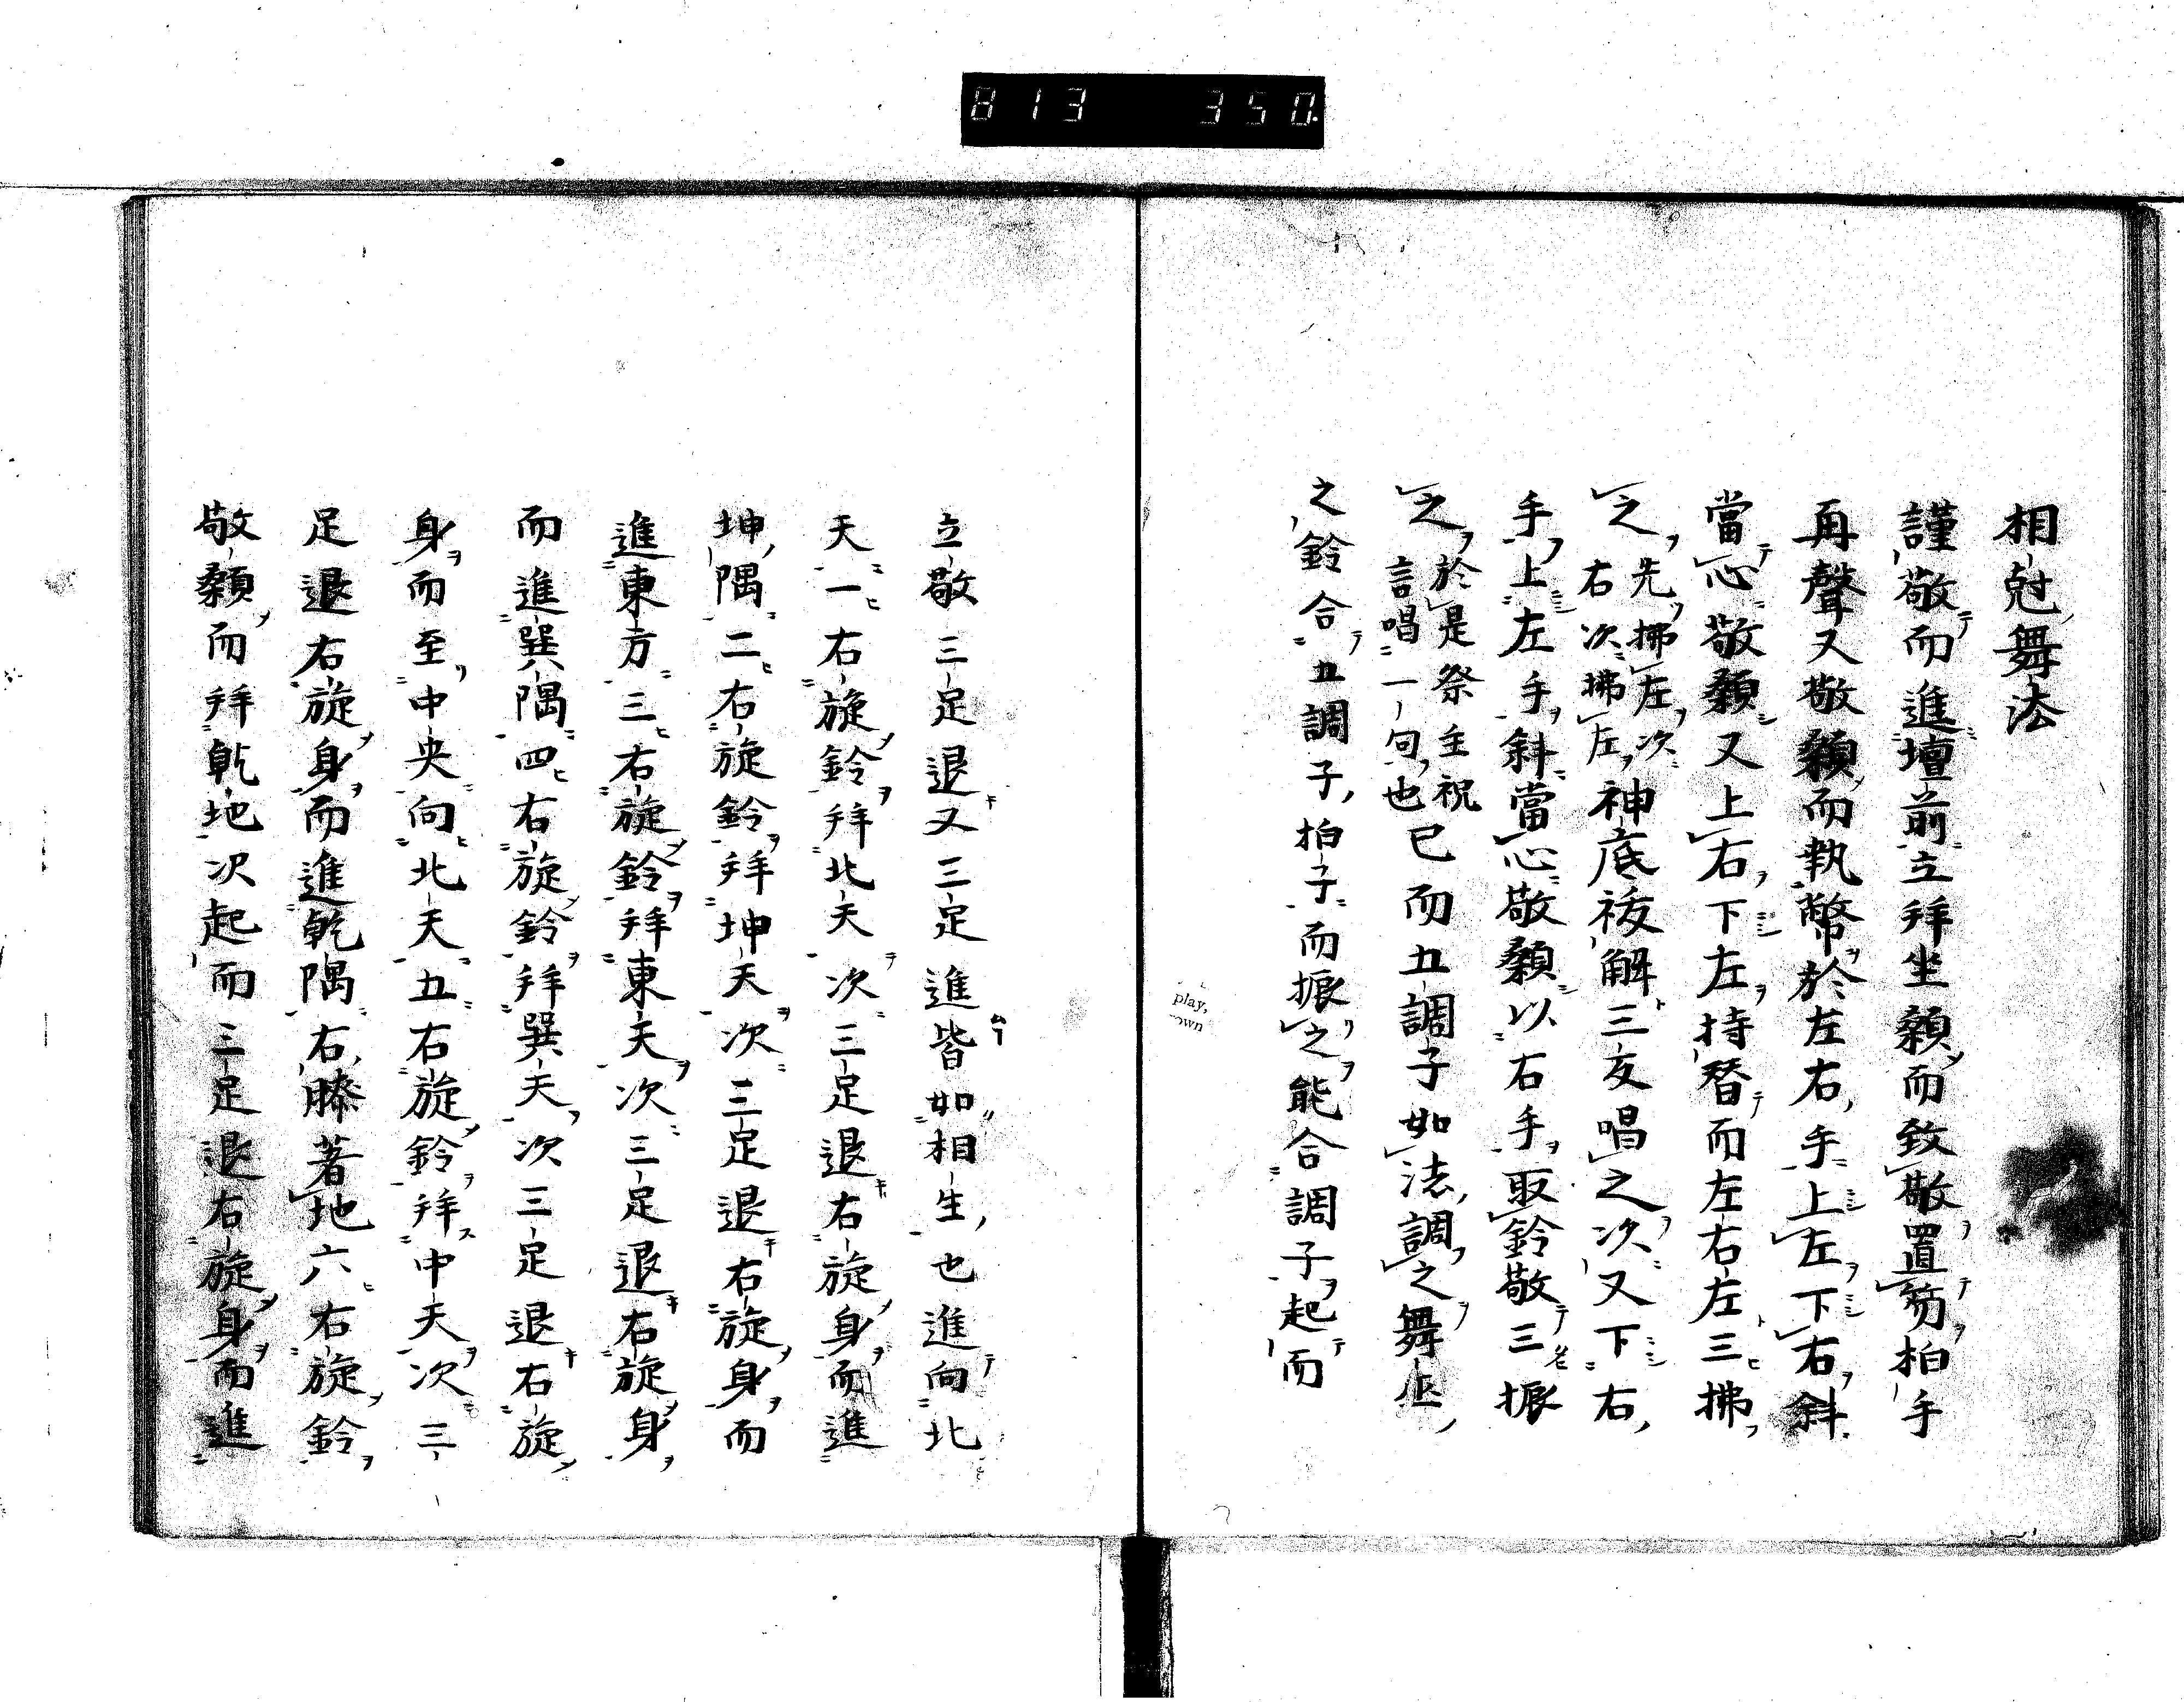 813 350.
相尅舞法
謹敬而進壇前立拜坐顙而致敬置笏拍手
再聲又敬顙而執幣於左右手上左下右斜
當心敬顙又上右下左持替而左右左三拂
之先拂左次右次拂左神底祓解三反唱之次又下右
手上左手斜當心敬顙以右手取鈴敬三振
之於是祭主祝言唱一句也已而五調子如法調之舞
之鈴合五調子拍子而振之能合調子起而
play,
own
立敬三足退又三足進皆如相生也進向北
天一右旋鈴拜北天次三足退右旋身而進
坤隅二右旋鈴拜坤天次三足退右旋身而
進東方三右旋鈴拜東天次三足退右旋身
而進巽隅四右旋鈴拜巽天次三足退右旋
身而至中央向北天五右旋鈴拜中天次三
足退右旋身而進乾隅右膝著地六右旋鈴
敬顙而拜乾地次起而三足退右旋身而進